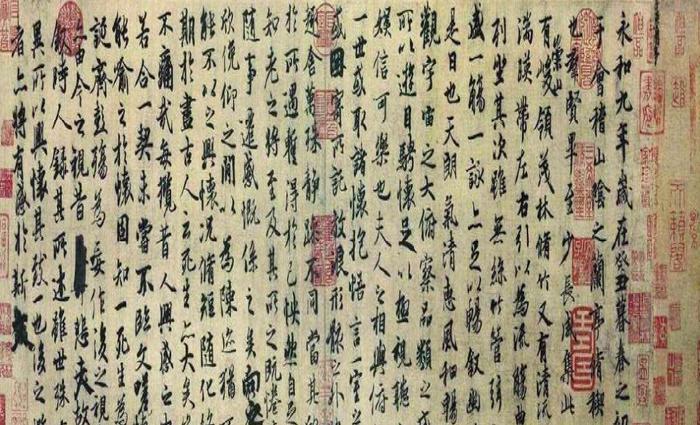 永和九年歲在癸丑暮春之初
于會稽山陰之蘭亭脩稧
也群賢畢至少長咸集此
有崇山峻領茂林脩竹又有清流
湍暎帶左右引以為流觴曲
列坐其次雖無絲竹管弦
盛一觴一詠亦足以暢敘幽
是日也天朗氣清惠風和暢
觀宇宙之大俯察品類之盛
所以遊目騁懷足以極視聽
娛信可樂也夫人之相與俯
一世或取諸懷抱悟言一室之
或因寄所託放浪形骸之外
趣舍萬殊靜躁不同當其欣
於所遇蹔得於己怏然自足
知老之將至及其所之既惓
隨事遷感慨係之矣向之
欣俛仰之間以為陳迹猶
能不以之興懷況脩短隨化
期於盡古人云死生亦大矣
不痛哉每攬昔人興感之
若合一契未嘗不臨文嗟
能喻之於懷固知一死生為
誕齊彭殤為妄作後之視
亦由今之視昔悲夫故
敘時人錄其所述雖世殊
異所以興懷其致一也後之
者亦將有感於斯文